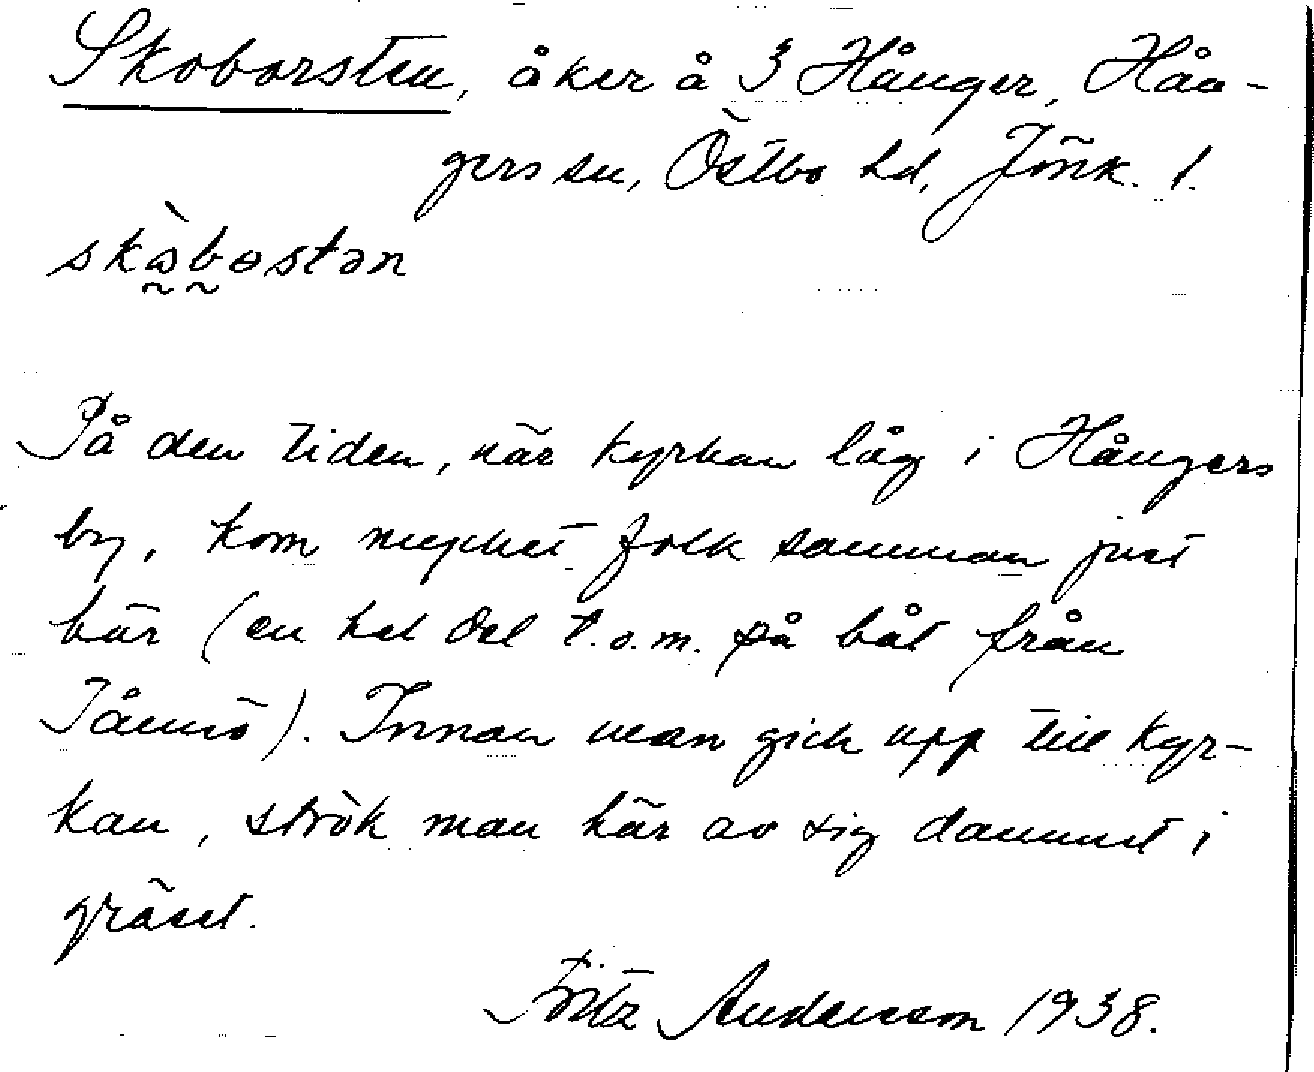 Skoborsten, åker å 3 Hånger, Hån-
gers sn, Östbo hd, Jönk. l.
skòbostən
På den tiden, när kyrkan låg i Hångers
by, kom mycket folk samman just
här (en hel del t.o.m. på båt från
Tånnö). Innan man gick upp till kyr-
kan, strök man här av sig dammet i
gräset.
Fritz Andersson 1938.